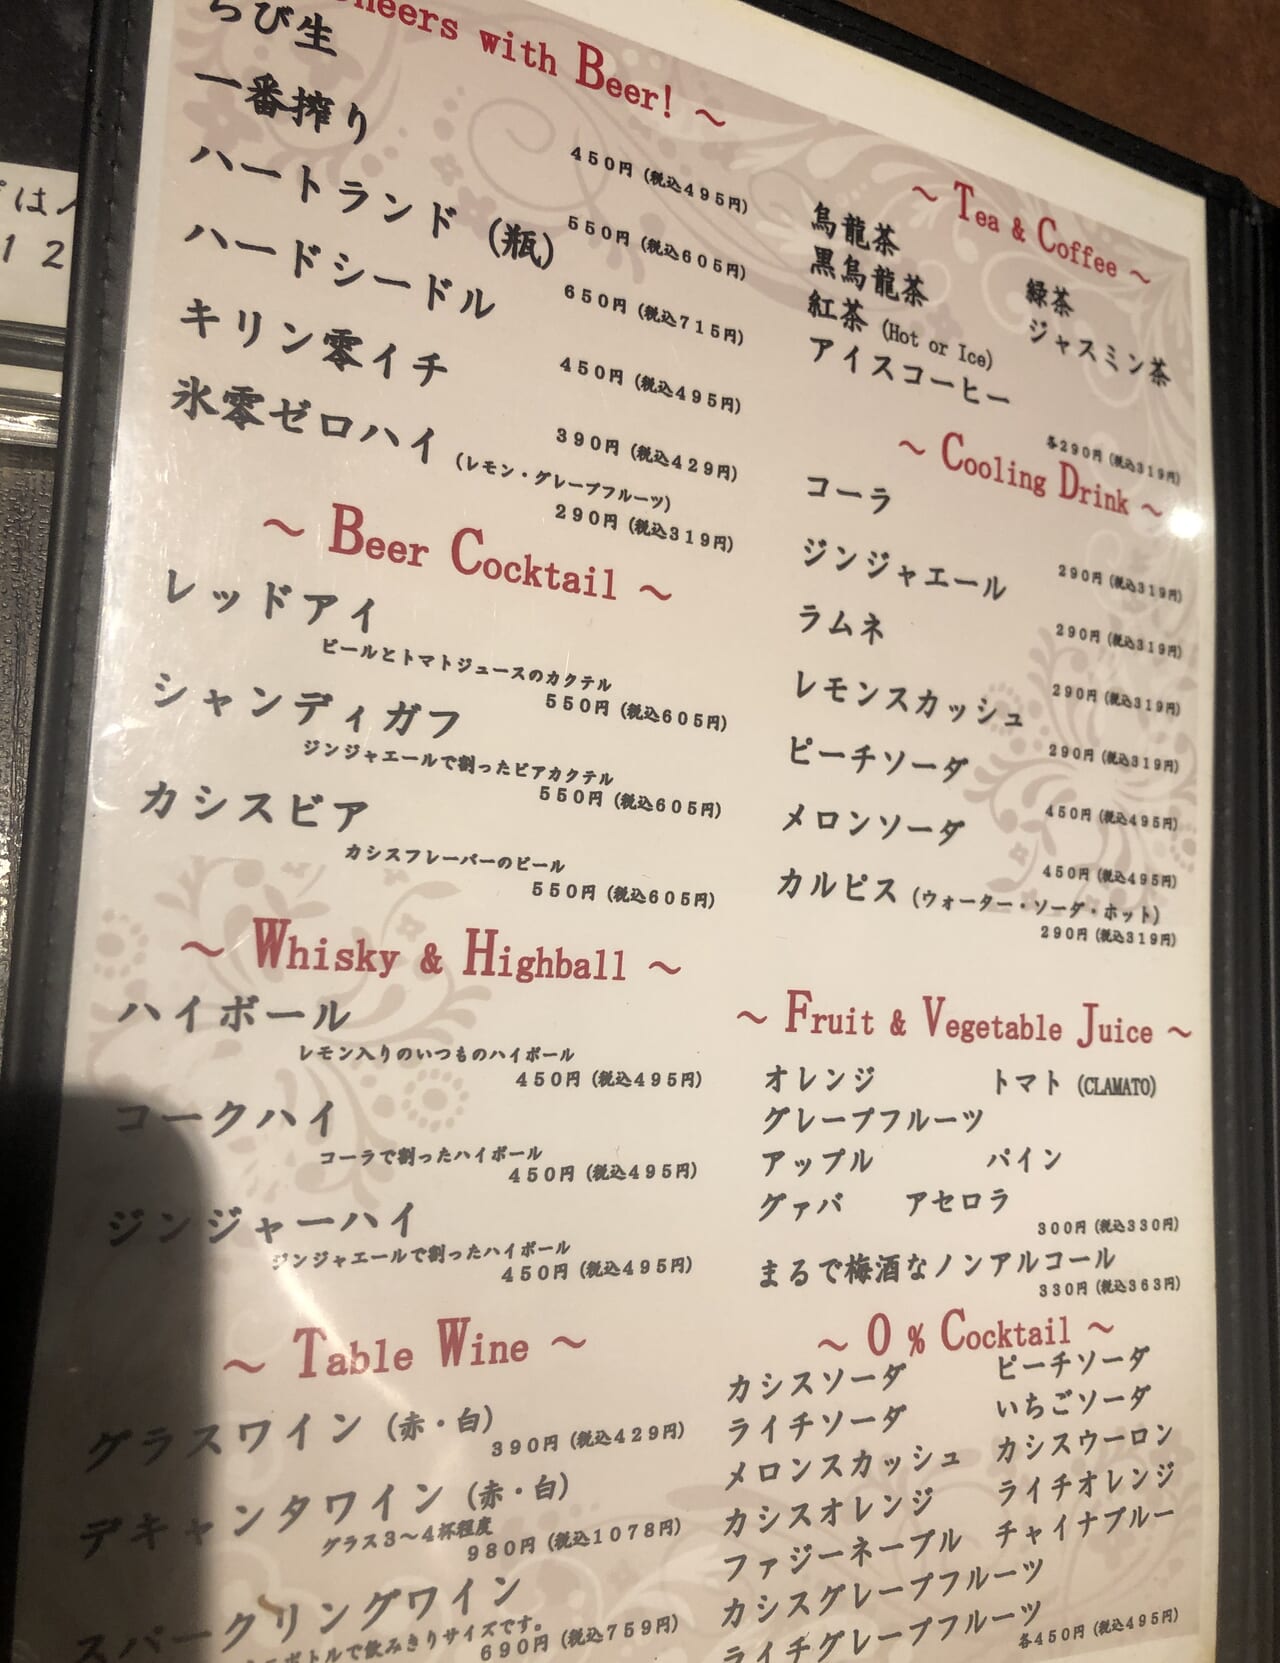 Cheers with Beer! ～
ちび生
450円 (税込495円)
一番搾り
550円 (税込605円)
ハートランド (瓶)
650円 (税込715円)
ハードシードル
450円 (税込495円)
キリン零イチ
390円 (税込429円)
氷零ゼロハイ (レモン・グレープフルーツ)
290円 (税込319円)
～ Beer Cocktail ～
レッドアイ
ビールとトマトジュースのカクテル
550円 (税込605円)
シャンディガフ
ジンジャエールで割ったビアカクテル
550円 (税込605円)
カシスビア
カシスフレーバーのビール
550円 (税込605円)
～ Whisky & Highball ～
ハイボール
レモン入りのいつものハイボール
450円 (税込495円)
コークハイ
コーラで割ったハイボール
450円 (税込495円)
ジンジャーハイ
ジンジャエールで割ったハイボール
450円 (税込495円)
～ Table Wine ～
グラスワイン (赤・白)
390円 (税込429円)
デキャンタワイン (赤・白)
グラス3～4杯程度
980円 (税込1078円)
スパークリングワイン
ボトルで飲みきりサイズです。
690円 (税込759円)
～ Tea & Coffee ～
烏龍茶 緑茶
黒烏龍茶 ジャスミン茶
紅茶 (Hot or Ice)
アイスコーヒー
各290円 (税込319円)
～ Cooling Drink ～
コーラ
290円 (税込319円)
ジンジャエール
290円 (税込319円)
ラムネ
290円 (税込319円)
レモンスカッシュ
290円 (税込319円)
ピーチソーダ
450円 (税込495円)
メロンソーダ
450円 (税込495円)
カルピス (ウォーター・ソーダ・ホット)
290円 (税込319円)
～ Fruit & Vegetable Juice ～
オレンジ トマト (CLAMATO)
グレープフルーツ
アップル パイン
グァバ アセロラ
300円 (税込330円)
まるで梅酒なノンアルコール
330円 (税込363円)
～ 0 % Cocktail ～
カシスソーダ ピーチソーダ
ライチソーダ いちごソーダ
メロンスカッシュ カシスウーロン
カシスオレンジ ライチオレンジ
ファジーネーブル チャイナブルー
カシスグレープフルーツ
ライチグレープフルーツ
各450円 (税込495円)